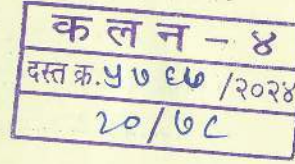 क ल न - ४
दस्त क्र. ५७६७ /२०२४
२०/७८